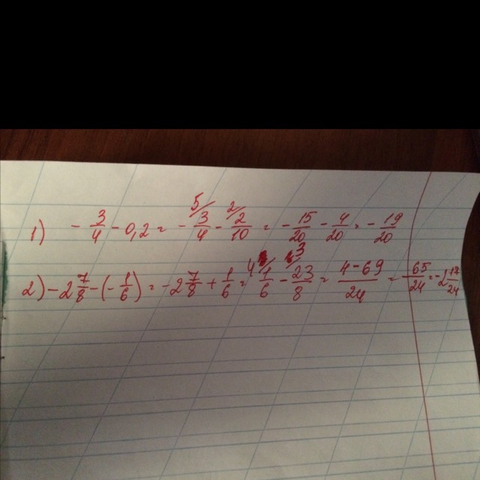 1) - 3/4 - 0,2 = - 5/ 3/4 - 2/ 2/10 = - 15/20 - 4/20 = - 19/20
2) - 2 7/8 - (- 1/6) = - 2 7/8 + 1/6 = 4/ 1/6 - 3/ 23/8 = 4-69/24 = - 65/24 = - 2